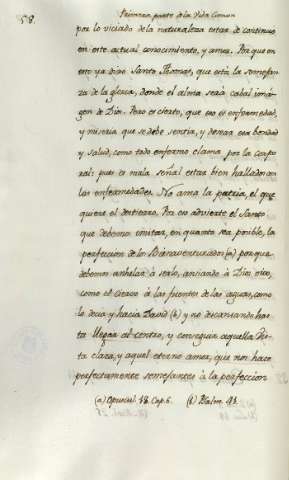 58. Primera parte de la Vida Comun
por lo viciado de la naturaleza estar de continuo
en este actual conocimiento, y amor. Por que en
esto ya dixo Santo Thomas, que está la semejan-
za de la gloria, donde el alma sería cabal imá-
gen de Dios. Pero es cierto, que eso es enfermedad,
y miseria que se debe sentir, y desear esa bondad
y salud, como todo enfermo clama por la corpo-
ral: pues es mala señal estar bien hallado con
las enfermedades. No ama la patria, el que
quiere el destierro. Por eso advierte el Santo
que debemos imitar, en quanto sea posible, la
perfeccion de los Bienaventurados (a) porque
debemos anhelar à serlo, ansiando à Dios vivo,
como el ciervo à las fuentes de las aguas, como
lo decia y hacia David (b) y no descansando has-
ta llegar al centro, y conseguir aquella Vis-
ta clara, y aquel eterno amor, que nos hace
perfectamente semejantes à la perfeccion
(a) Opuscul. 18. Cap. 6. (b) Psalm. 41.